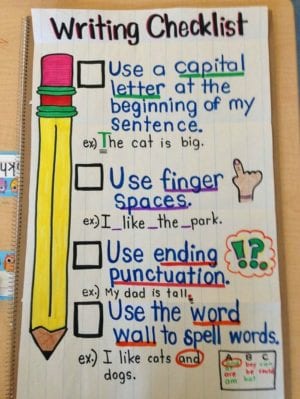 Writing Checklist
Use a capital
letter at the
beginning of my
sentence.
ex) The cat is big.
Use finger
spaces.
ex) I_like_the_park.
Use ending
punctuation.
!?.
ex.) My dad is tall.
Use the word
wall to spell words.
ex.) I like cats and
dogs.
A B C
and boy can
are be could
am but